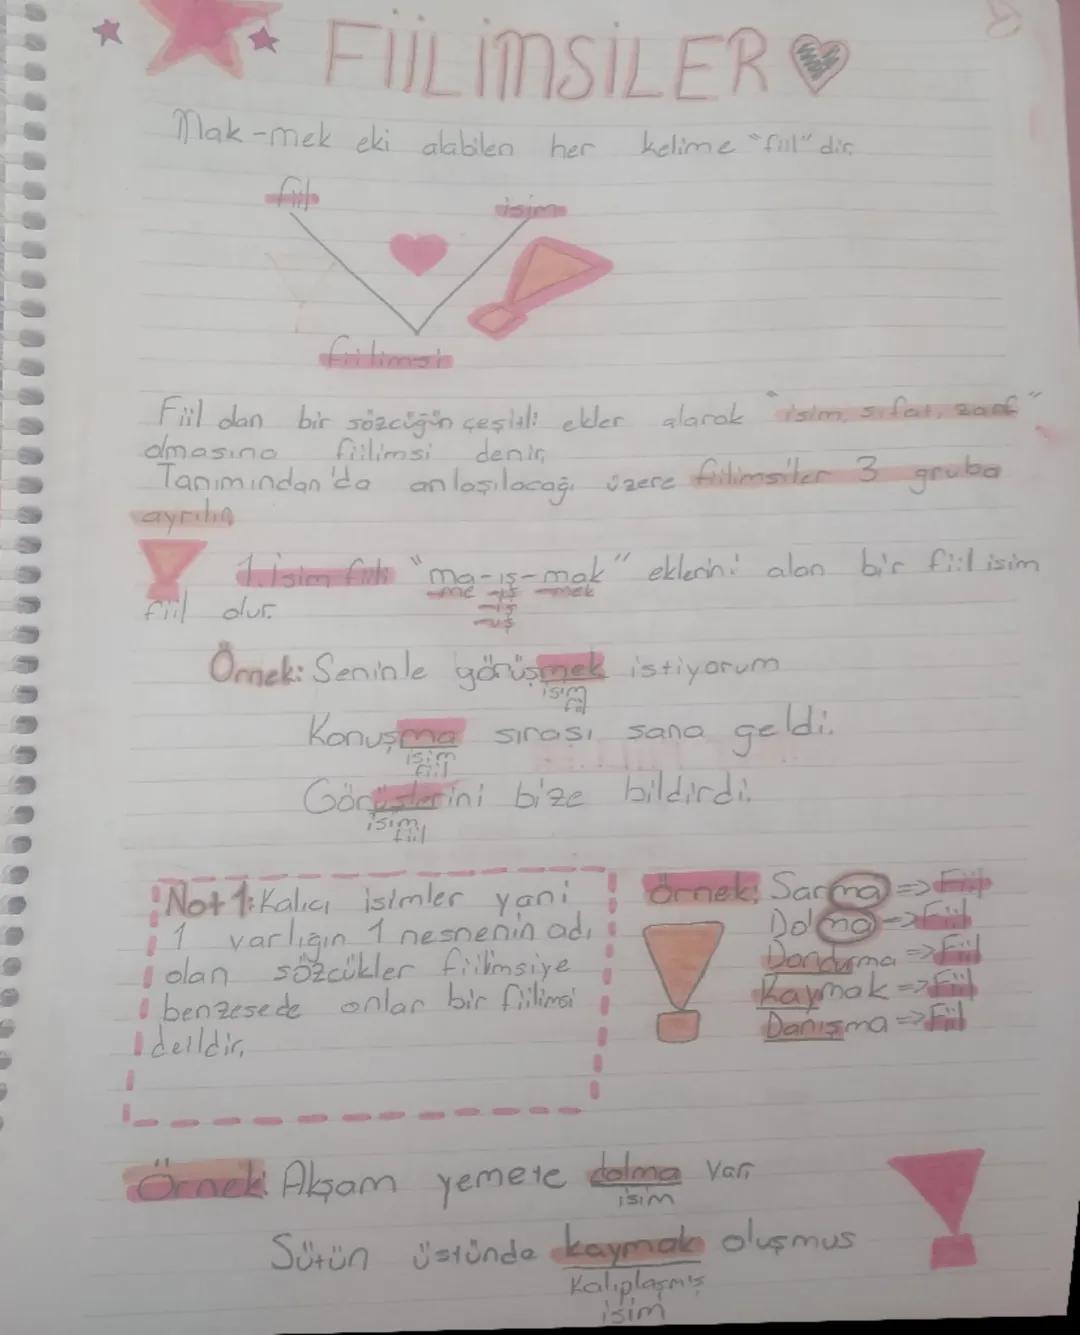 FİİLİMSİLER
Mak-mek eki alabilen her kelime "fiil" dir.
fiil
isim
fiilimsi
Fiil dan bir sözcüğün çeşitli ekler alarak "isim, sıfat, zarf"
olmasına fiilimsi denir.
Tanımından'da anlaşılacağı üzere fiilimsiler 3 gruba
ayrılır.
1. İsim fiil "ma-ış-mak" eklerini alan bir fiil isim
-me -iş -mek
-iş
-uş
fiil olur.
Örnek: Seninle görüşmek istiyorum
isim
fiil
Konuşma sırası sana geldi.
isim
fiil
Görüşlerini bize bildirdi.
isim
fiil
Not 1: Kalıcı isimler yani
1 varlığın 1 nesnenin adı
olan sözcükler fiilimsiye
benzesede onlar bir fiilimsi
deildir.
Örnek: Sarma => Fiil
Dolma => Fiil
Dondurma => Fiil
Kaymak => Fiil
Danışma => Fiil
Örnek: Akşam yemete dolma var.
isim
Sütün üstünde kaymak oluşmus
Kalıplaşmış
isim